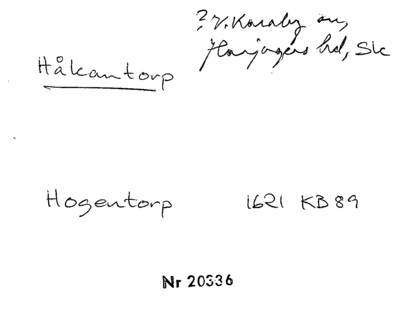 ? V. Karaby sn,
Harjagers hd, Sk
Håkantorp
Hogentorp 1621 KB 89
Nr 20336